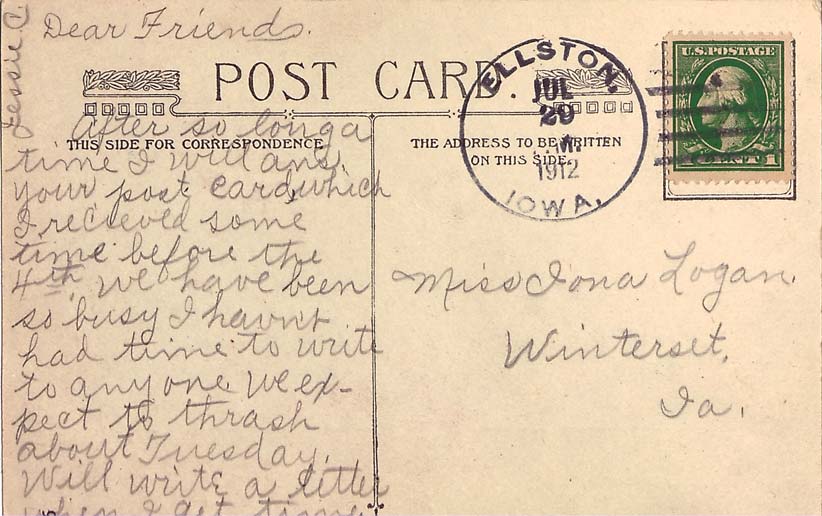 Jessie C.
Dear Friends.
POST CARD.
THIS SIDE FOR CORRESPONDENCE
After so long a
time I will ans.
your post card, which
I recieved some
time before the
4th. We have been
so busy I havn't
had time to write
to anyone. We ex-
pect to thrash
about Tuesday.
Will write a letter
when I get time
THE ADDRESS TO BE WRITTEN
ON THIS SIDE.
ELLSTON,
JUL
29
M.
1912
IOWA.
U.S. POSTAGE
1 CENT 1
Miss Iona Logan.
Winterset,
Ia.